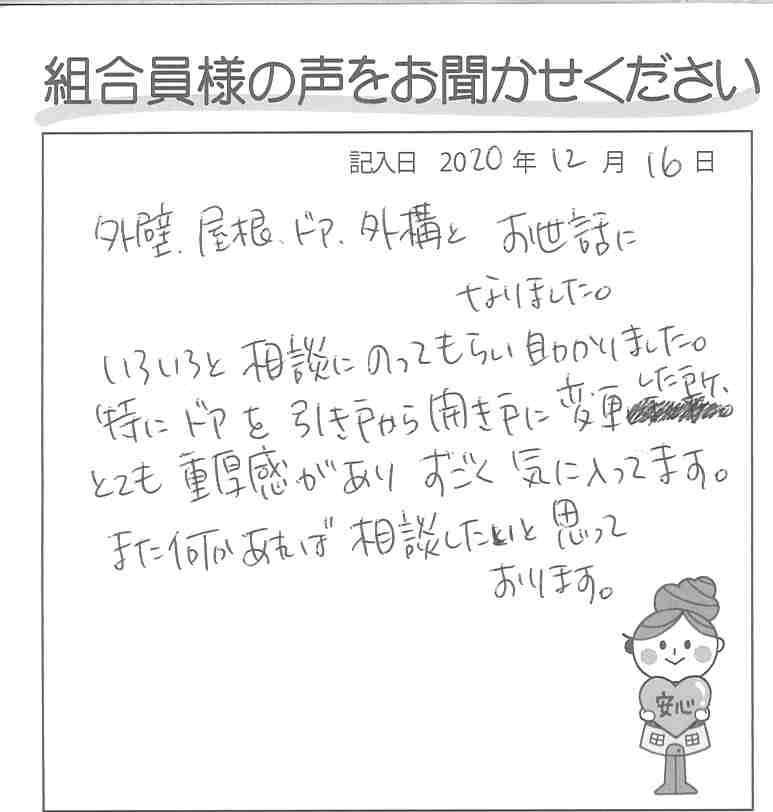 組合員様の声をお聞かせください
記入日 2020年12月16日
外壁、屋根、ドア、外構と お世話に
なりました。
いろいろと相談にのってもらい助かりました。
特にドアを引き戸から開き戸に変更した所、
とても重厚感がありすごく気に入ってます。
また何かあれば相談したいと思って
おります。
安心